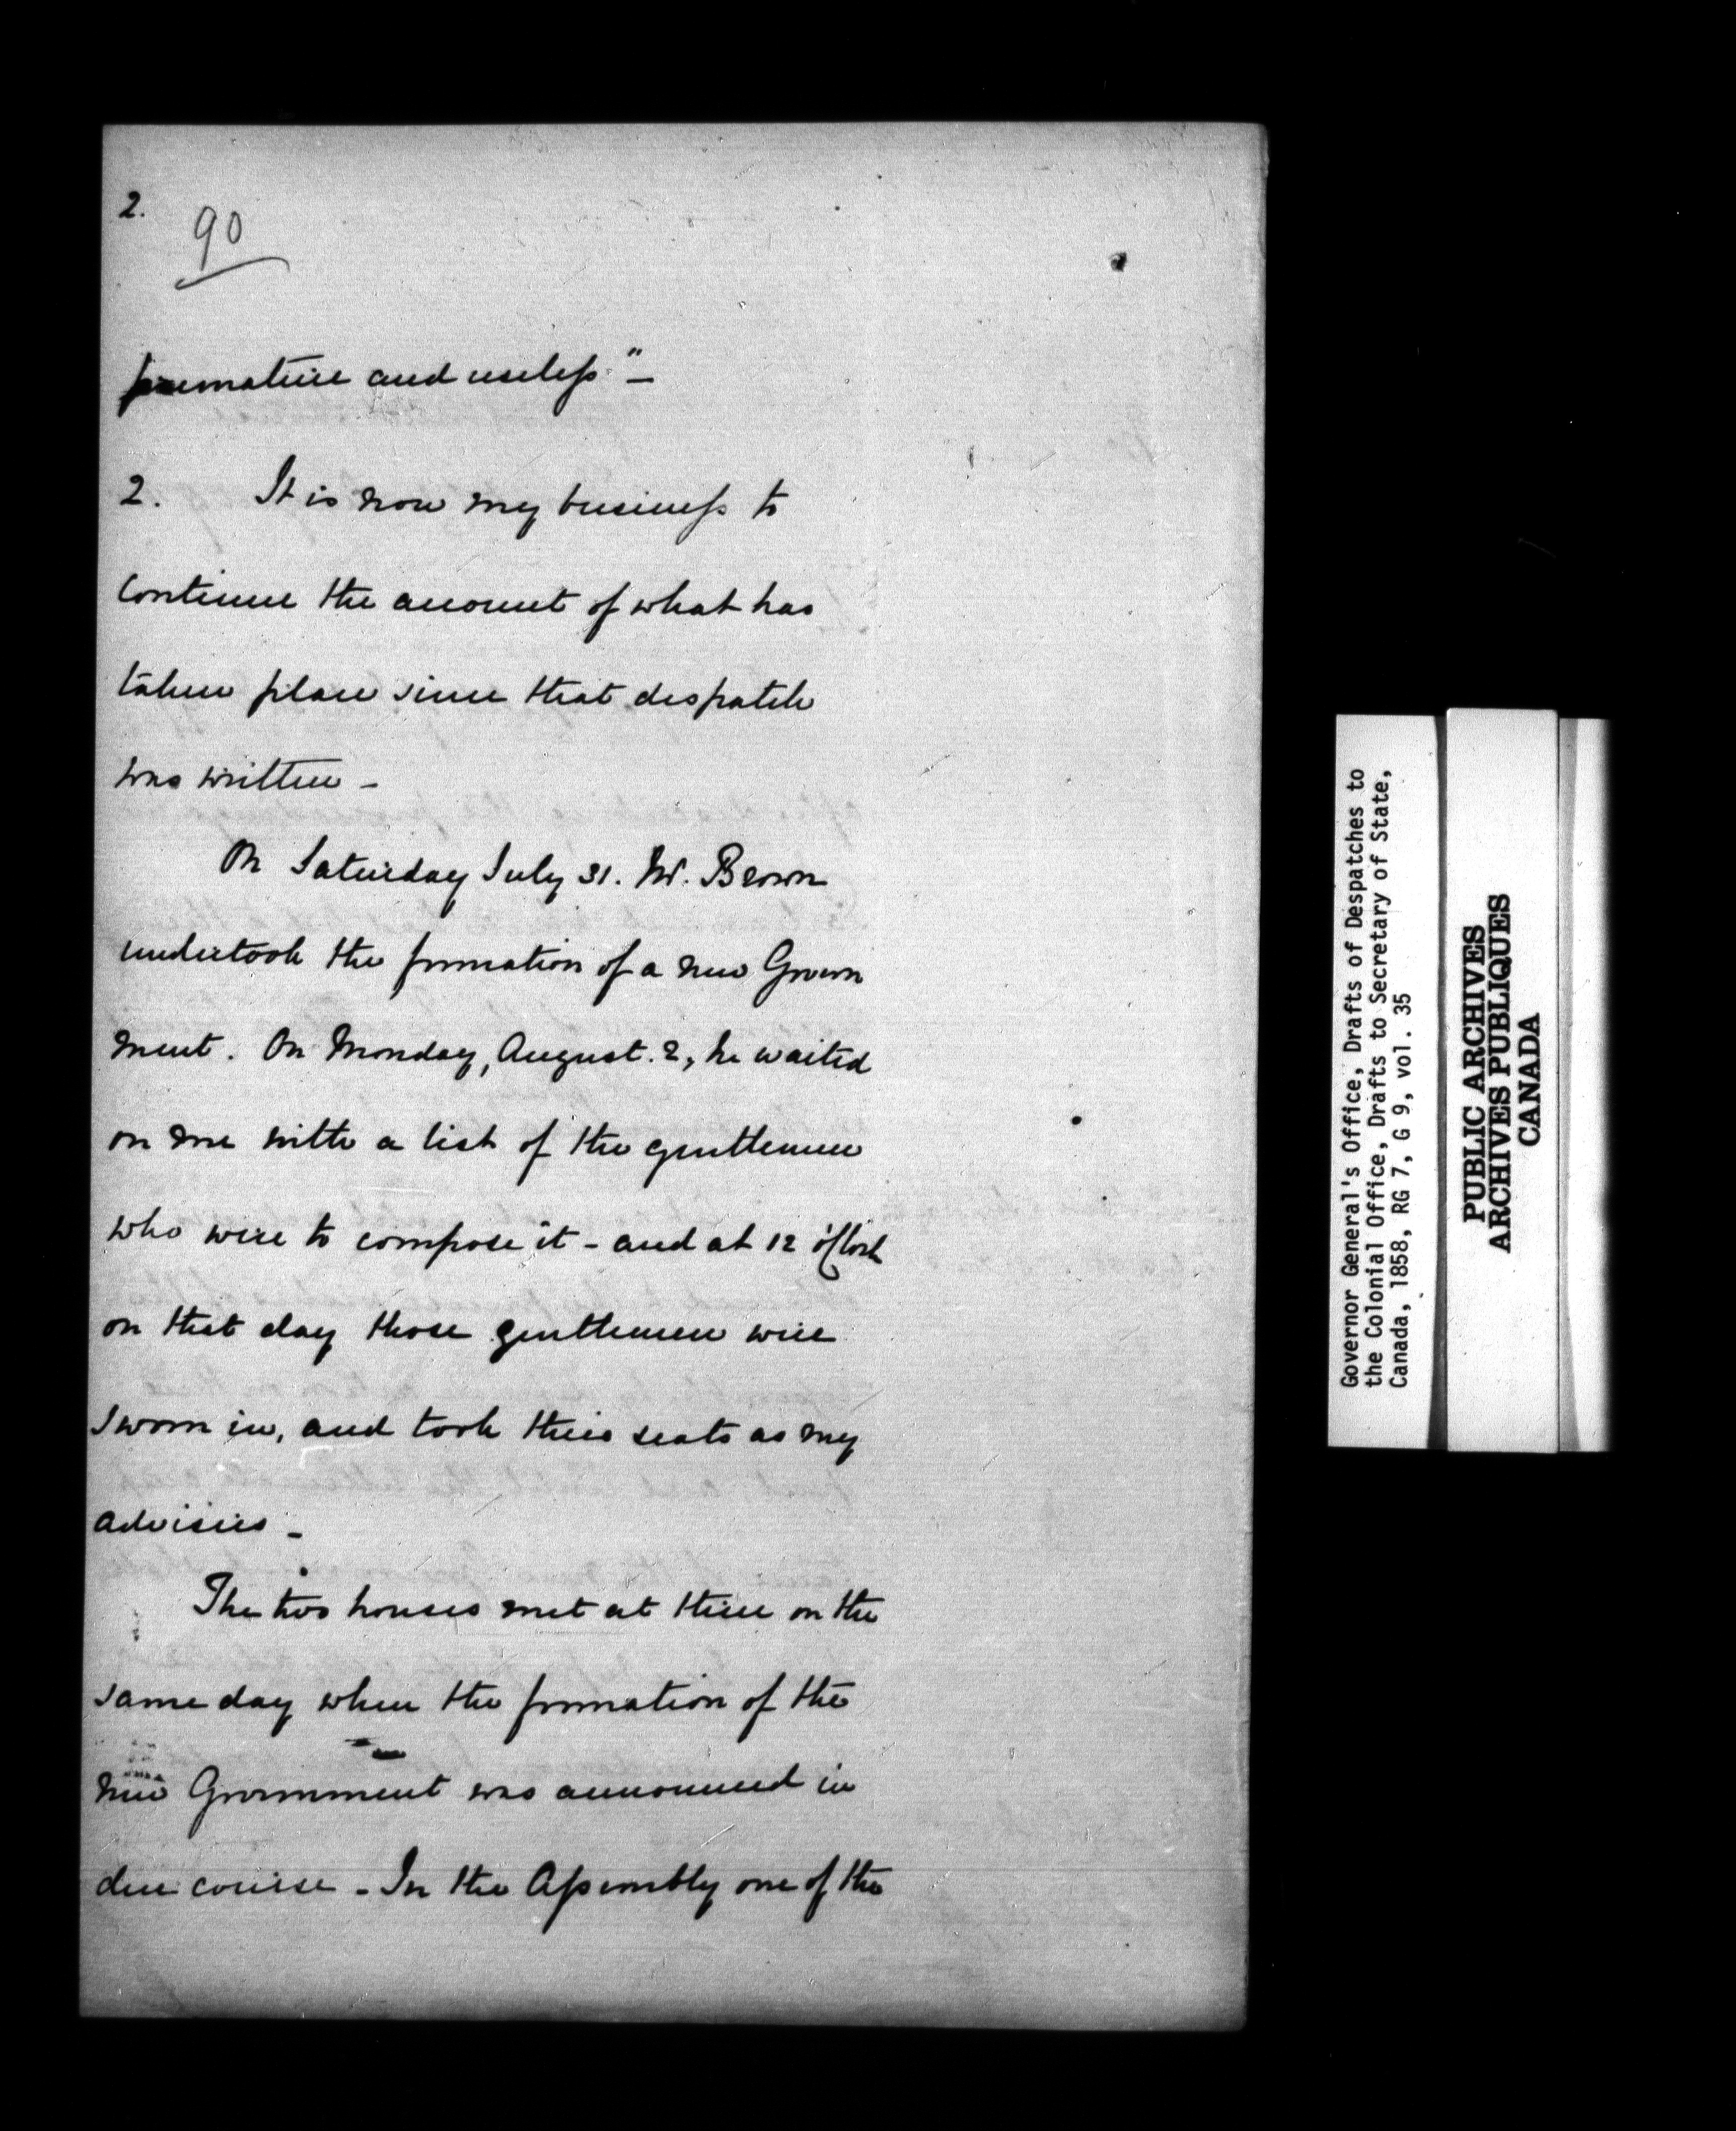 2.
90
premature and useless" —
2. It is now my business to
continue the account of what has
taken place since that despatch
was written –
On Saturday July 31. Mr. Brown
undertook the formation of a new Govern
ment. On Monday, August. 2, he waited
on me with a list of the gentlemen
who were to compose it – and at 12 o'Clock
on that day those gentlemen were
sworn in, and took their seats as my
advisers –
The two houses met at three on the
same day when the formation of the
new Government was announced in
due course – In the Assembly one of the
Governor General's Office, Drafts of Despatches to
the Colonial Office, Drafts to Secretary of State,
Canada, 1858, RG 7, G 9, vol. 35
PUBLIC ARCHIVES
ARCHIVES PUBLIQUES
CANADA